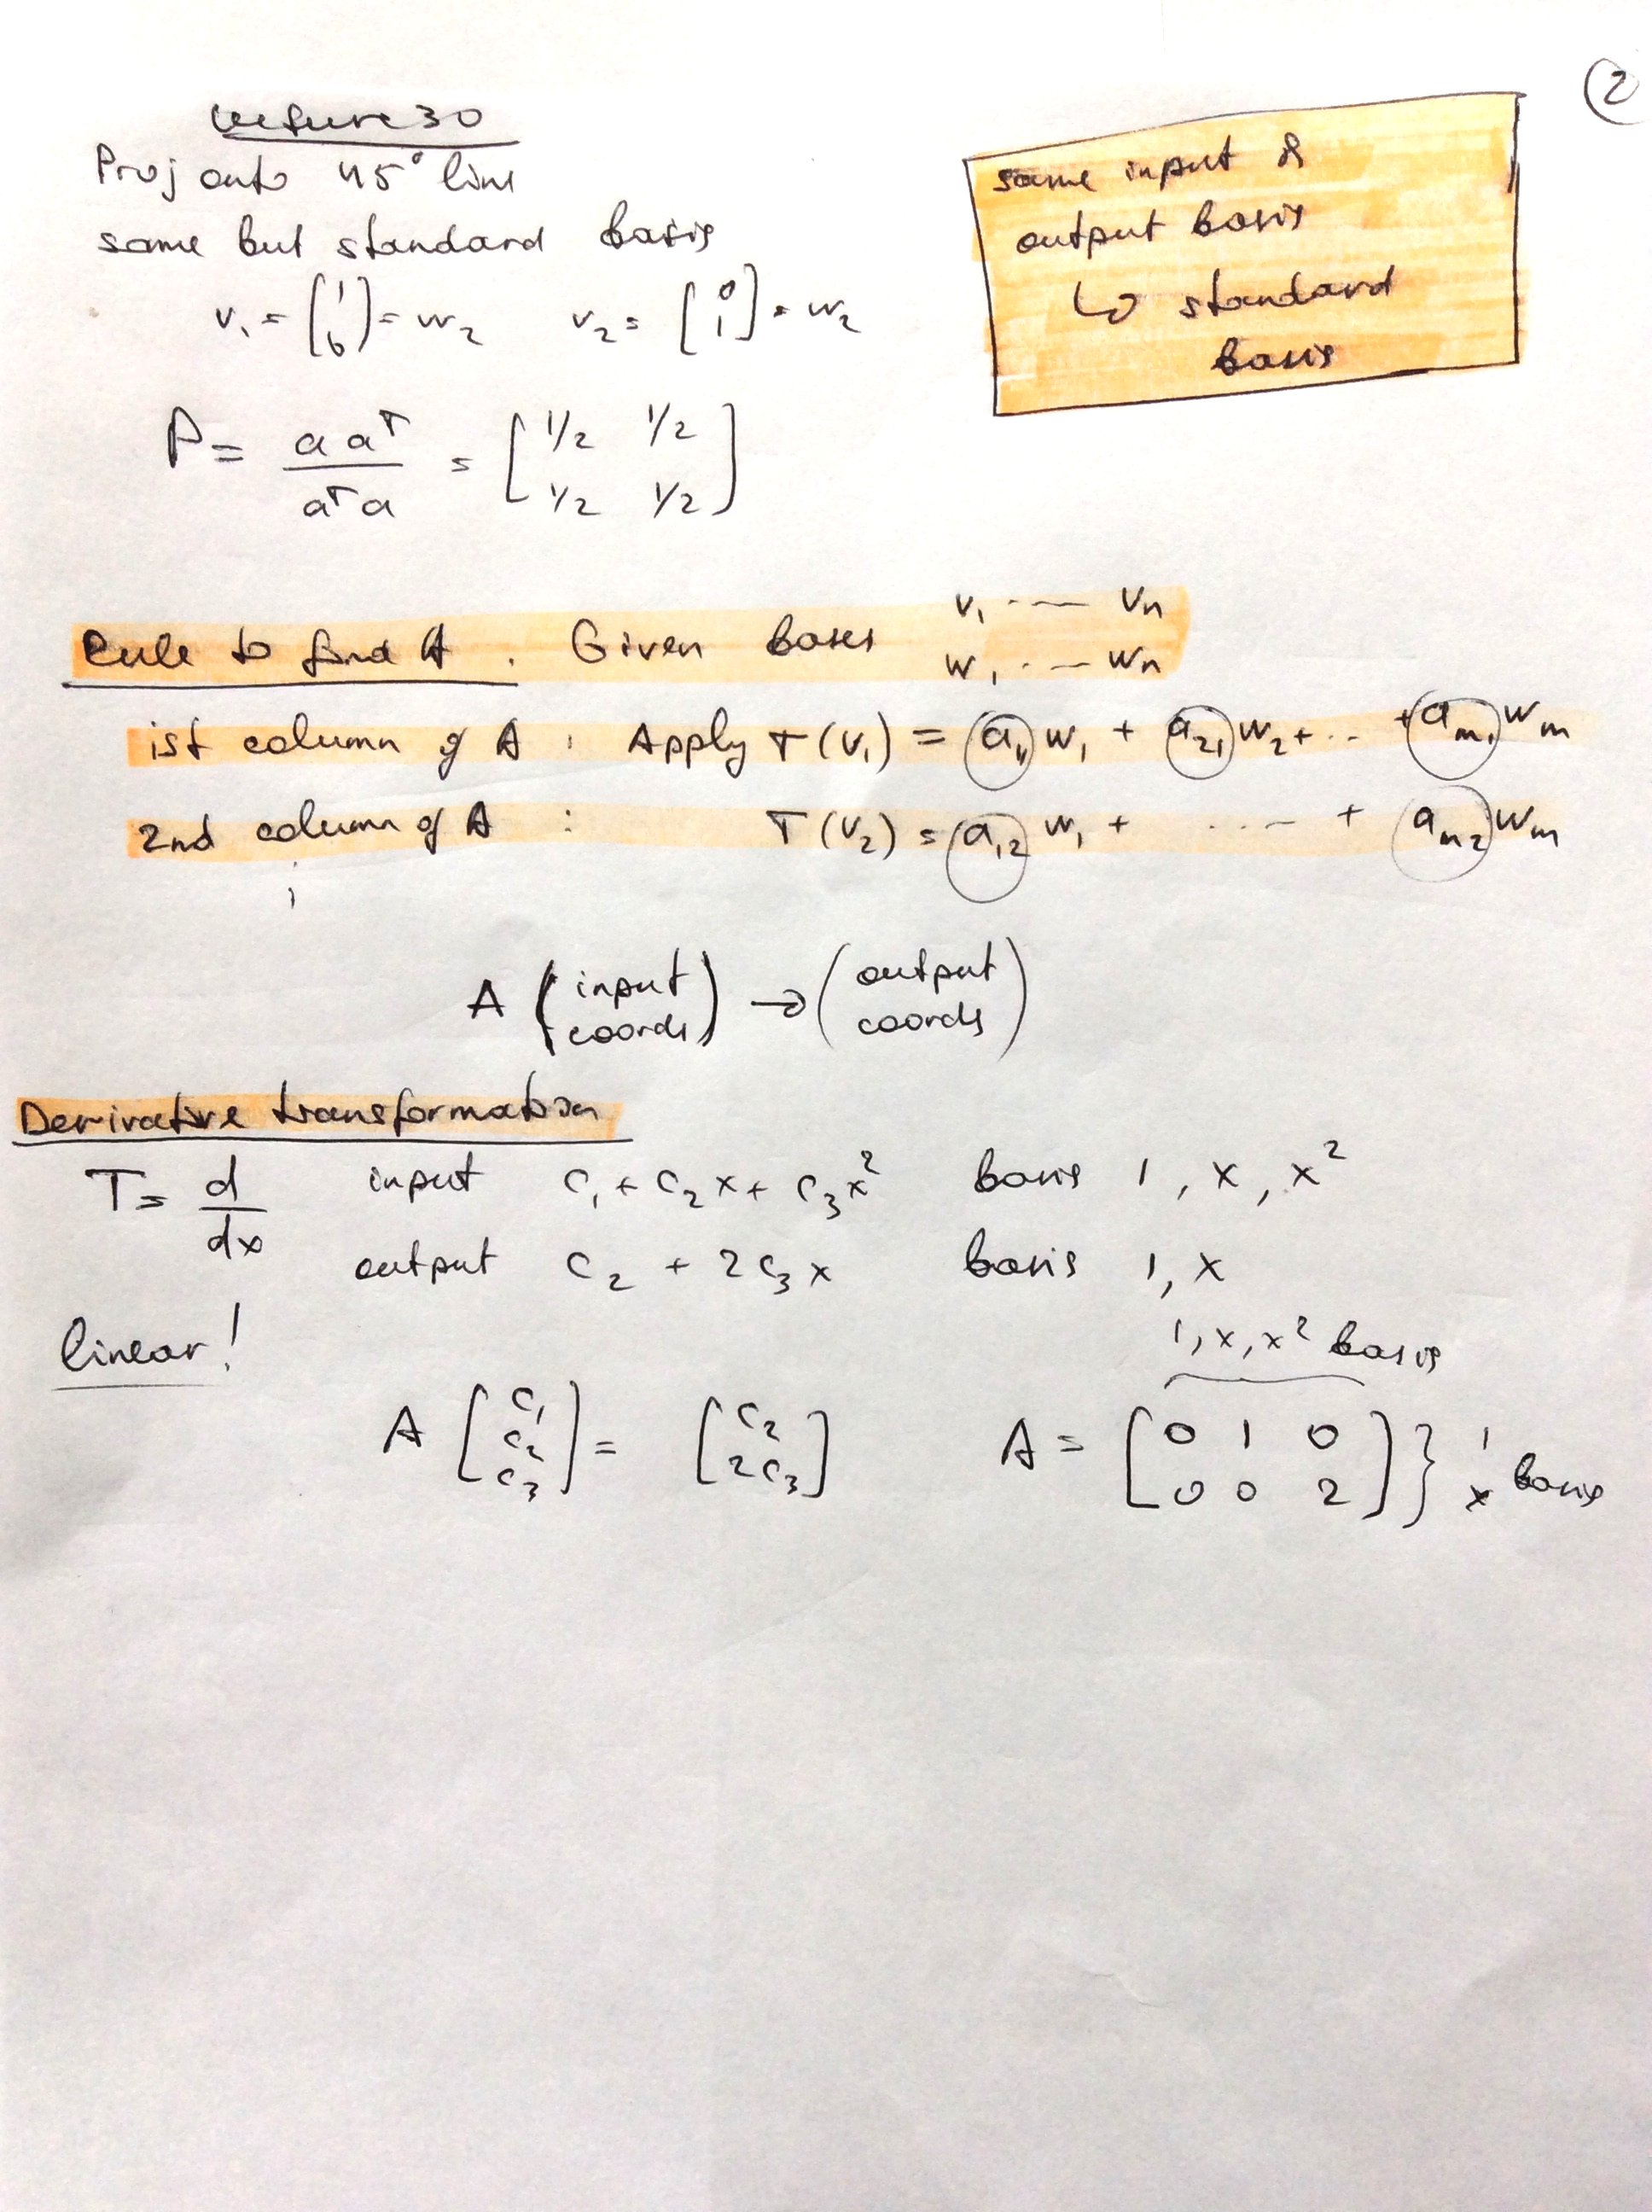 ②
Lecture 30
Proj onto 45° line
same but standard basis
v₁ = [1 0] = w₂   v₂ = [0 1] = w₂
same input &
output basis
↳ standard
basis
P = a aᵀ / aᵀ a = [1/2 1/2
1/2 1/2]
Rule to find A . Given bases v₁ ... vₙ
w₁ ... wₙ
1st column of A : Apply T(v₁) = a₁₁ w₁ + a₂₁ w₂ + .. + aₘ₁ wₘ
2nd column of A : T(v₂) = a₁₂ w₁ + .... + aₘ₂ wₘ
A (input coords) → (output coords)
Derivative transformation
T = d/dx input c₁ + c₂ x + c₃ x² basis 1, x, x²
output c₂ + 2c₃ x basis 1, x
linear!
1, x, x² basis
A [c₁ c₂ c₃] = [c₂ 2c₃]   A = [0 1 0
0 0 2] } 1 x basis